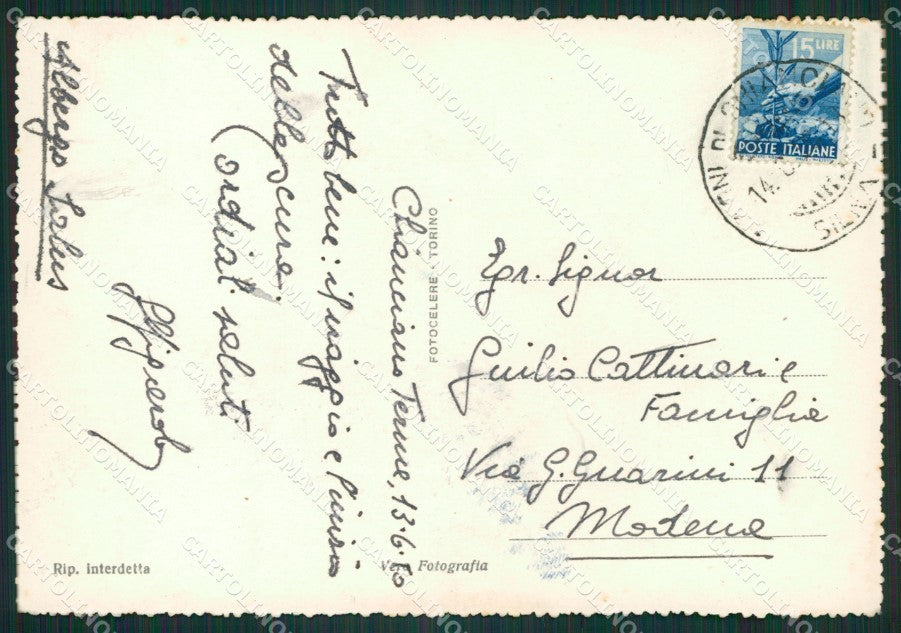 Chianciano Terme, 13·6·50
Tutto bene: il viaggio e l'inizio
delle cure.
Cordiali saluti
Albergo Salus
15 LIRE
POSTE ITALIANE
SIENA
Egr. Signor
Giulio Cattinari e
Famiglia
Via G. Guarini 11
Modena
FOTOCELERE · TORINO
Rip. interdetta
Vera Fotografia
CARTOLINOMANIA